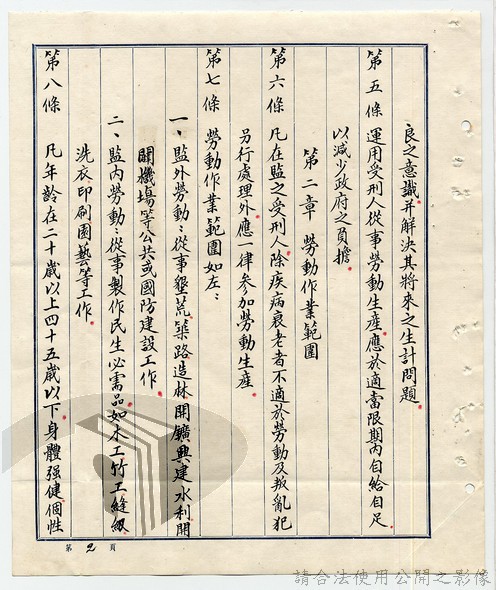 良之意識并解決其將來之生計問題
第五條 運用受刑人從事勞動生產應於適當限期內自給自足
以減少政府之負擔
第二章 勞動作業範圍
第六條 凡在監之受刑人除疾病衰老者不適於勞動及叛亂犯
另行處理外應一律參加勞動生產
第七條 勞動作業範圍如左：
一、監外勞動：從事墾荒築路造林開鑛興建水利開
闢機場等公共或國防建設工作
二、監內勞動：從事製作民生必需品如木工竹工縫紉
洗衣印刷園藝等工作
第八條 凡年齡在二十歲以上四十五歲以下身體强健個性
第2頁
請合法使用公開之影像